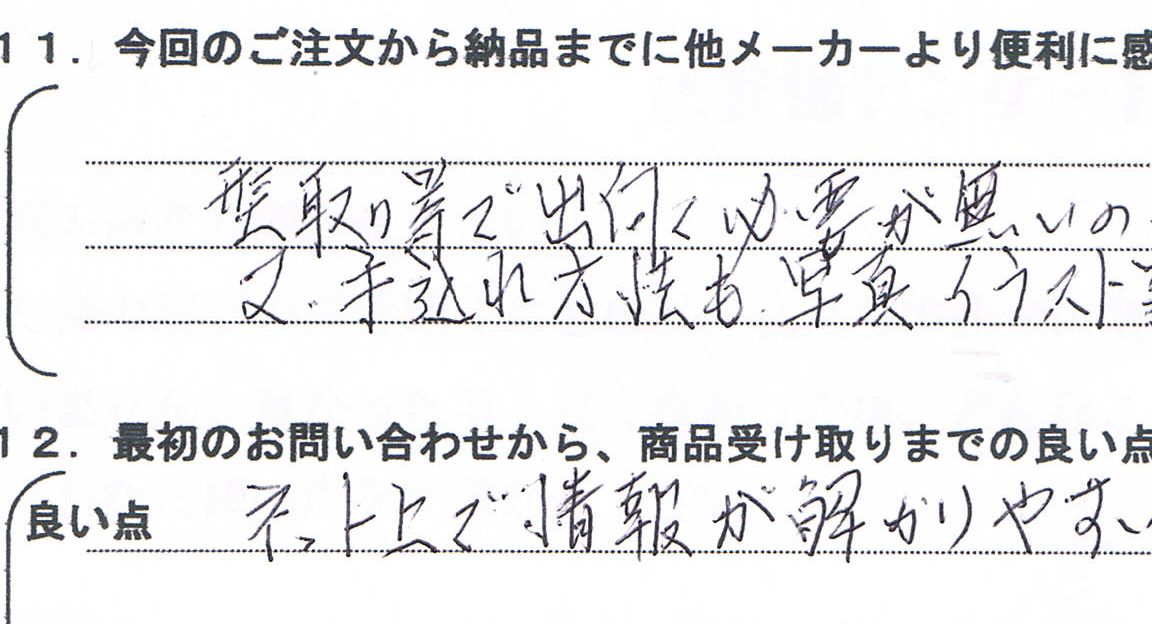 11．今回のご注文から納品までに他メーカーより便利に感
型取り等で出向く必要が無いの
又、手込れ方法も写真イラスト等
12．最初のお問い合わせから、商品受け取りまでの良い点
良い点 ネット上で情報が解かりやすい